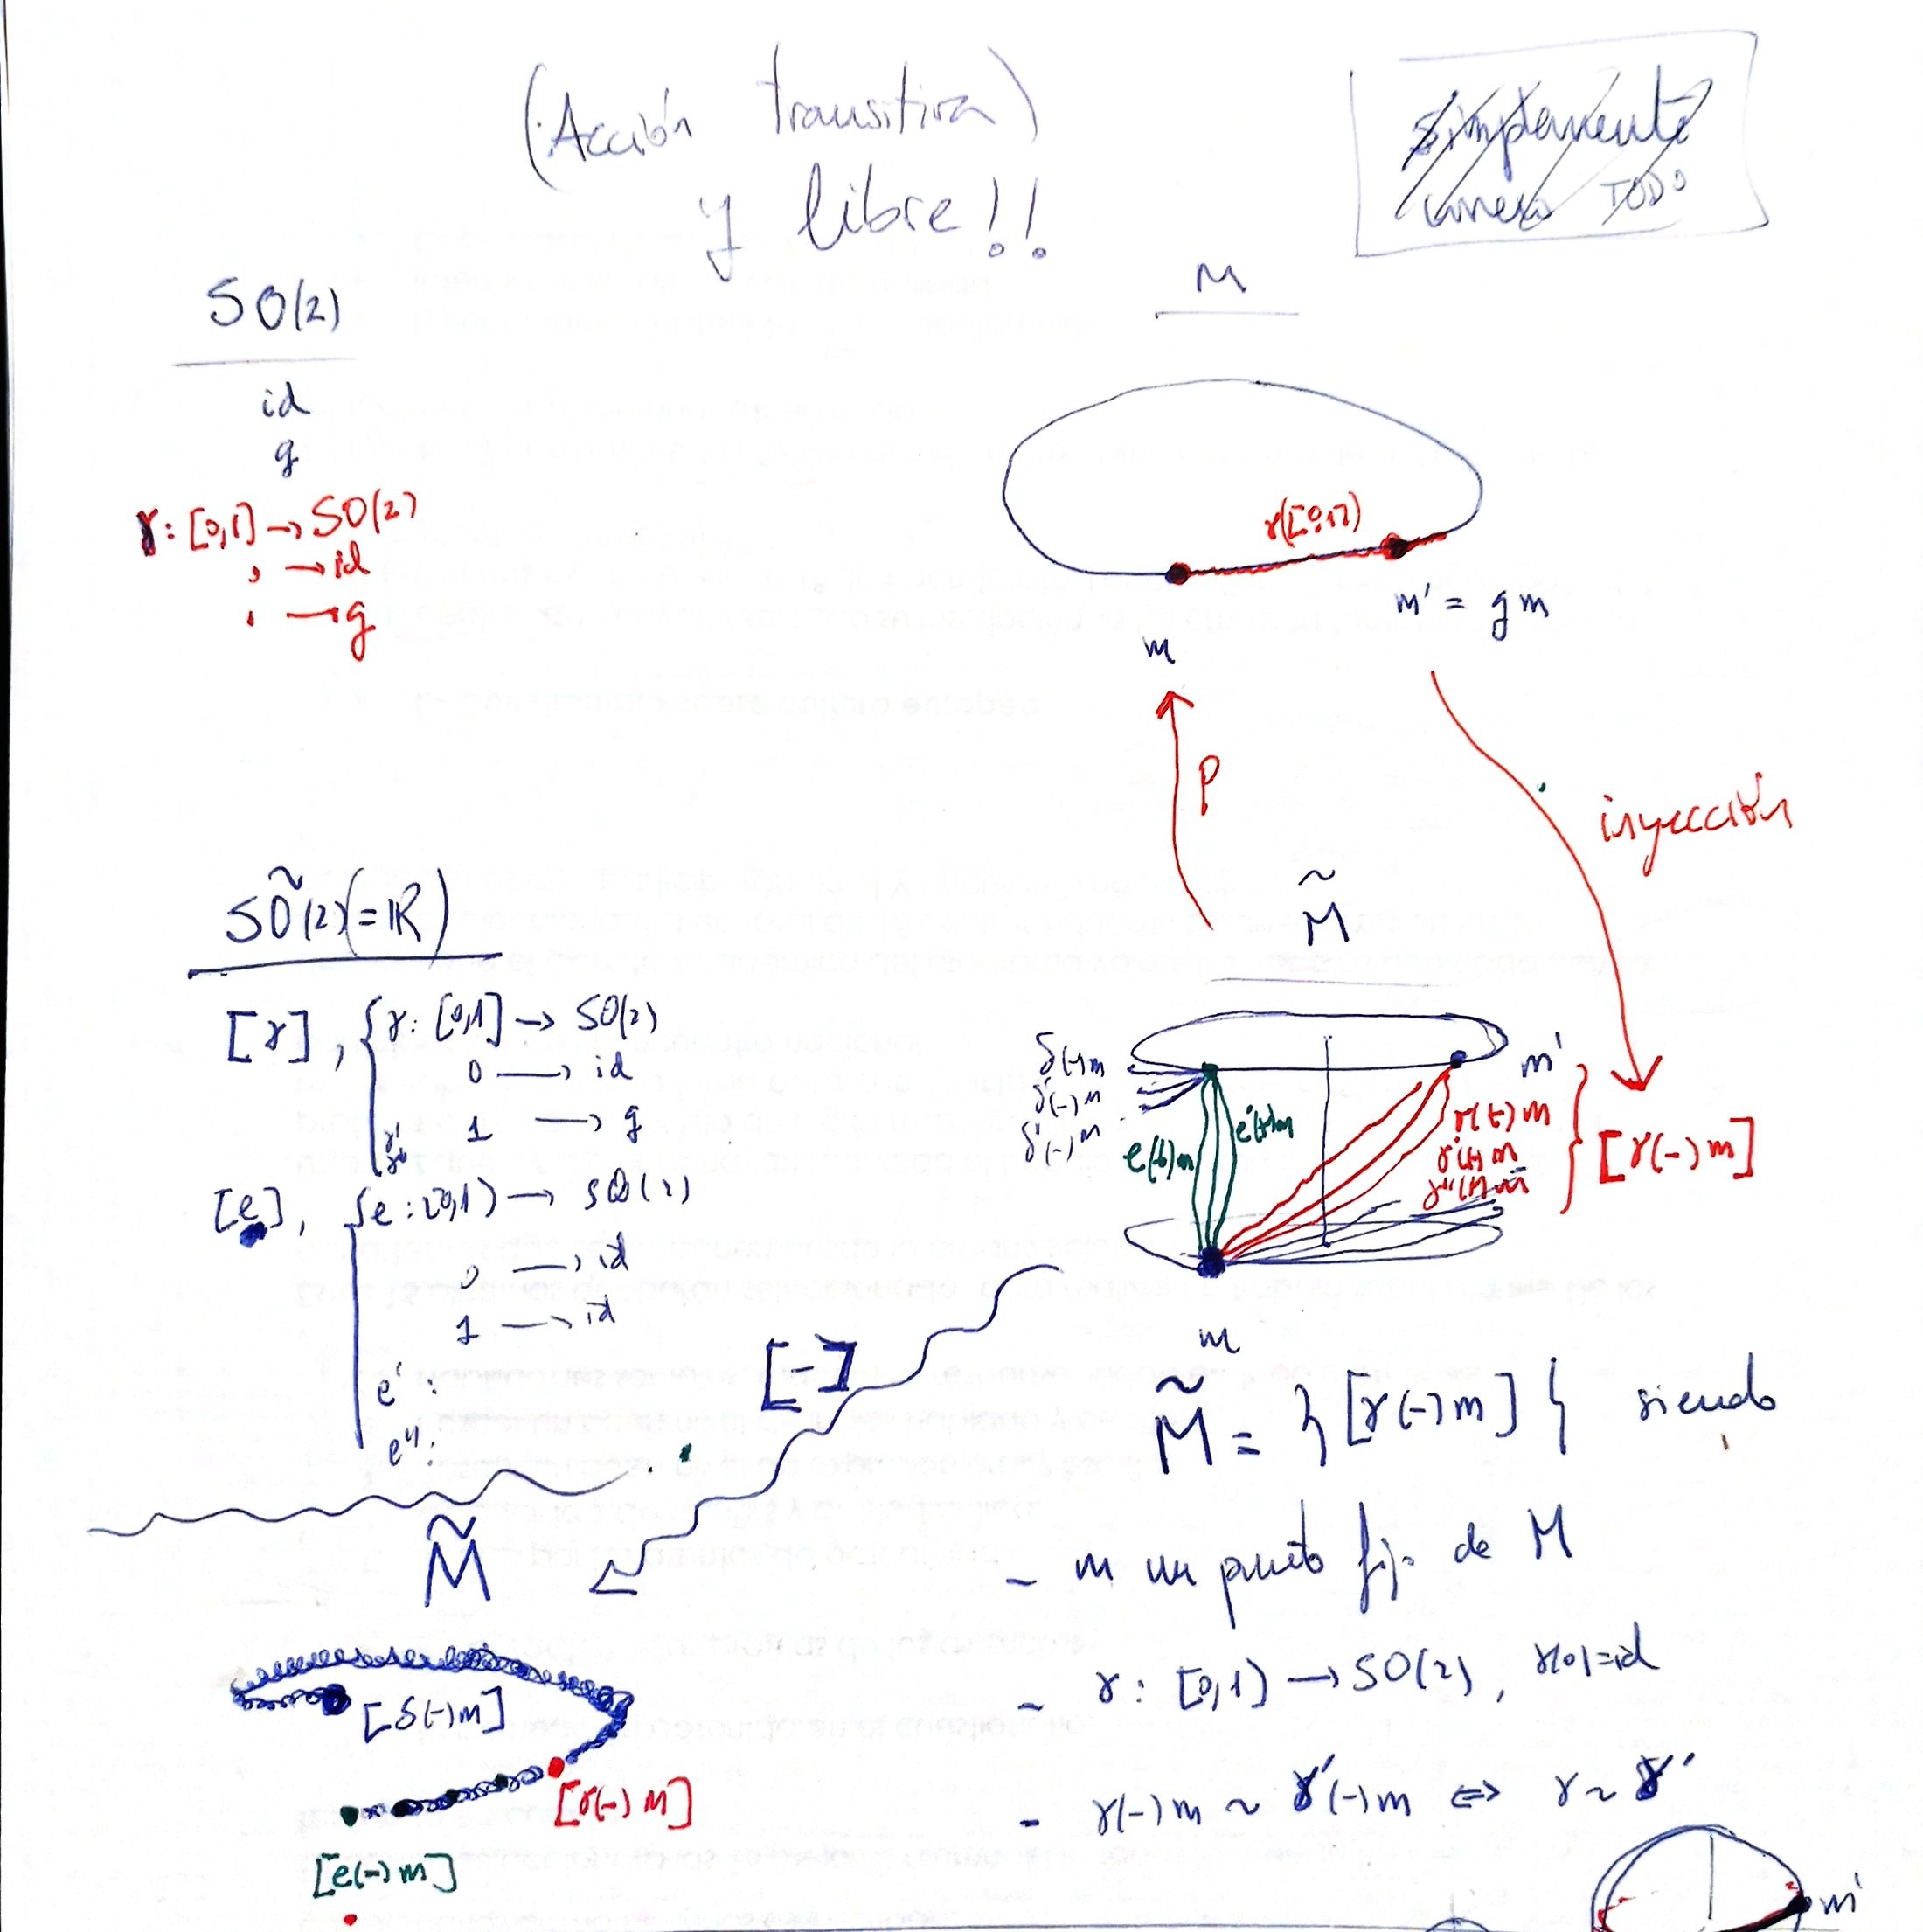 (Acción transitiva)
y libre!!
simplemente
conexo TODO
SO(2)
id
g
γ: [0,1] → SO(2)
→ id
→ g
M
γ([0,1])
m
m' = gm
p
inyección
SÕ(2) (=ℝ)
[γ], { γ: [0,1] → SO(2)
0 → id
1 → g
[e], { e: [0,1) → SO(2)
0 → id
1 → id
e':
e'':
M̃
δ(-)m
δ'(-)m
δ''(-)m
e(t)m
e'(t)m
m'
γ(t)m
γ'(t)m
γ''(t)m
[γ(-)m]
m
[-]
M̃ = { [γ(-)m] } siendo
- m un punto fijo de M
- γ: [0,1) → SO(2), γ(0)=id
- γ(-)m ~ γ'(-)m ⇔ γ ~ γ'
M̃
[δ(-)m]
[γ(-)m]
[e(-)m]
m'